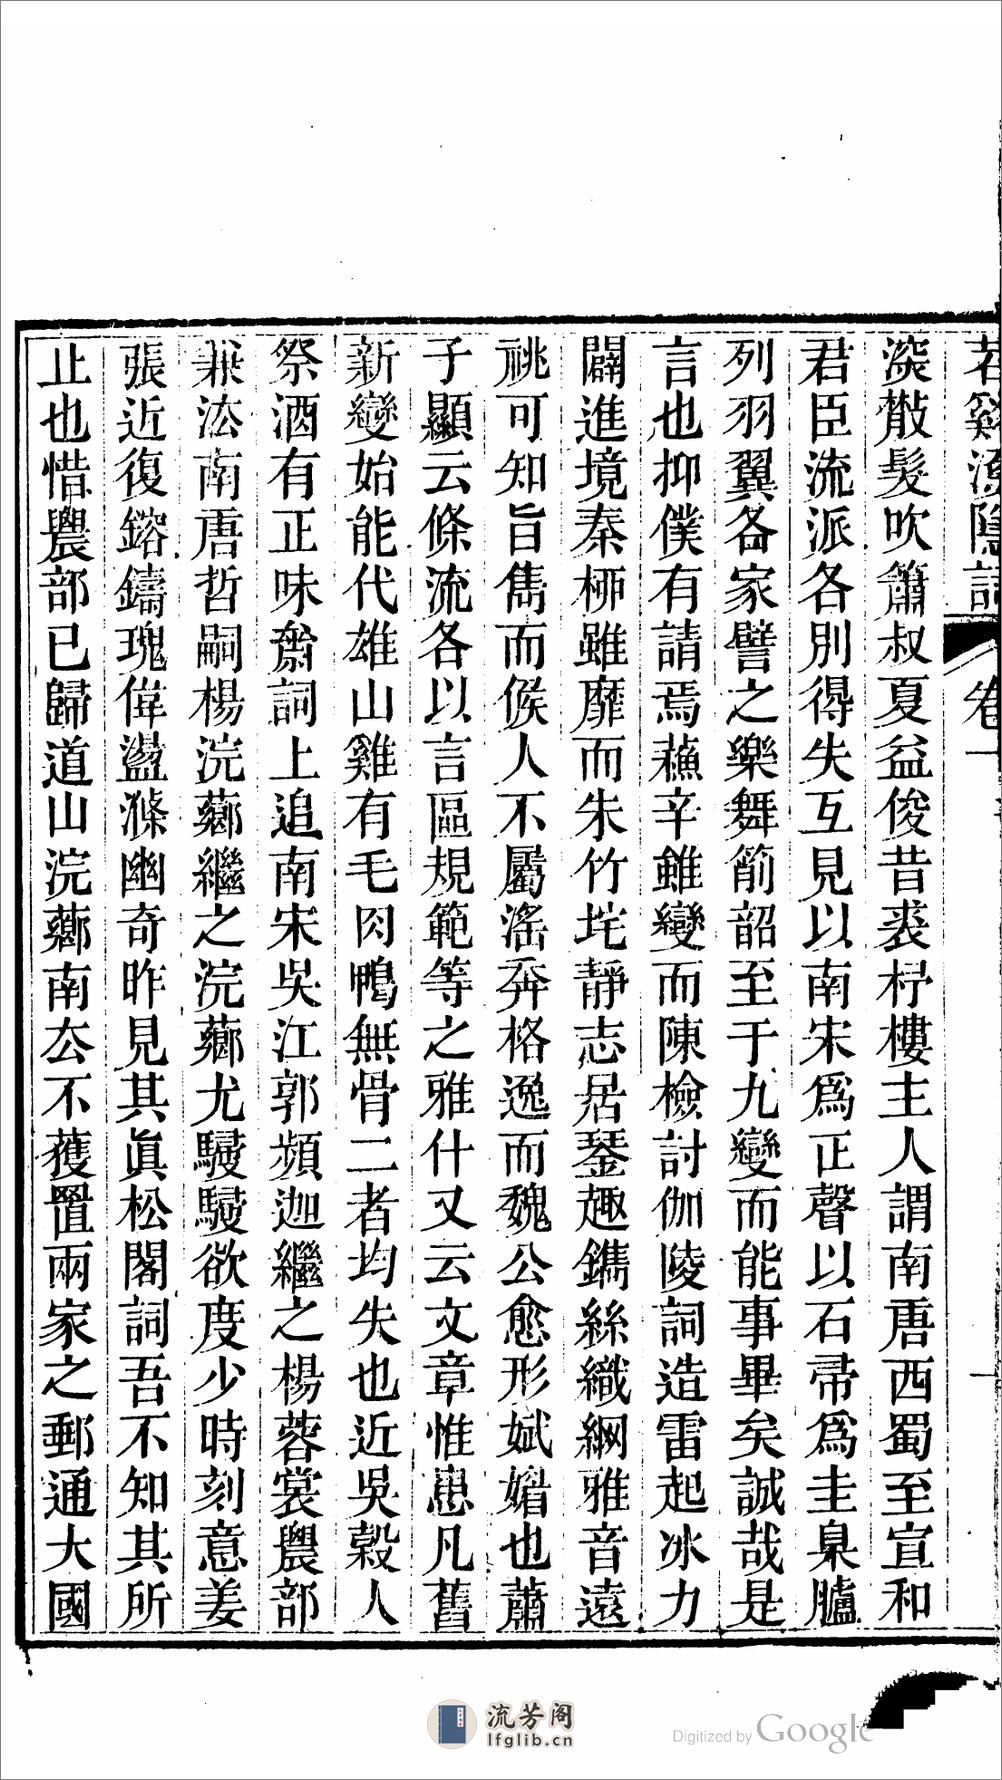 苕谿漁隱詞 卷一 一
深散髮吹簫叔夏益俊昔裘杼樓主人謂南唐西蜀至宣和
君臣流派各別得失互見以南宋爲正聲以石帚爲圭臬臚
列羽翼各家譬之樂舞箾韶至于九變而能事畢矣誠哉是
言也抑僕有請焉蘓辛雖變而陳檢討伽陵詞造雷起冰力
闢進境秦桺雖靡而朱竹垞靜志居琴趣鐫絲織綱雅音遠
祧可知旨雋而俟人不屬滛弄格逸而魏公愈形娬媚也蕭
子顯云條流各以言區規範等之雅什又云文章惟患凡舊
新變始能代雄山雞有毛肉鴨無骨二者均失也近吳榖人
祭酒有正味齋詞上追南宋吳江郭頻迦繼之楊蓉裳農部
兼泫南唐哲嗣楊浣薌繼之浣薌尤駸駸欲度少時刻意姜
張近復鎔鑄瑰偉盪滌幽奇昨見其眞松閣詞吾不知其所
止也惜農部已歸道山浣薌南厺不獲置兩家之郵通大國
流芳阁
lfglib.cn
Digitized by Google